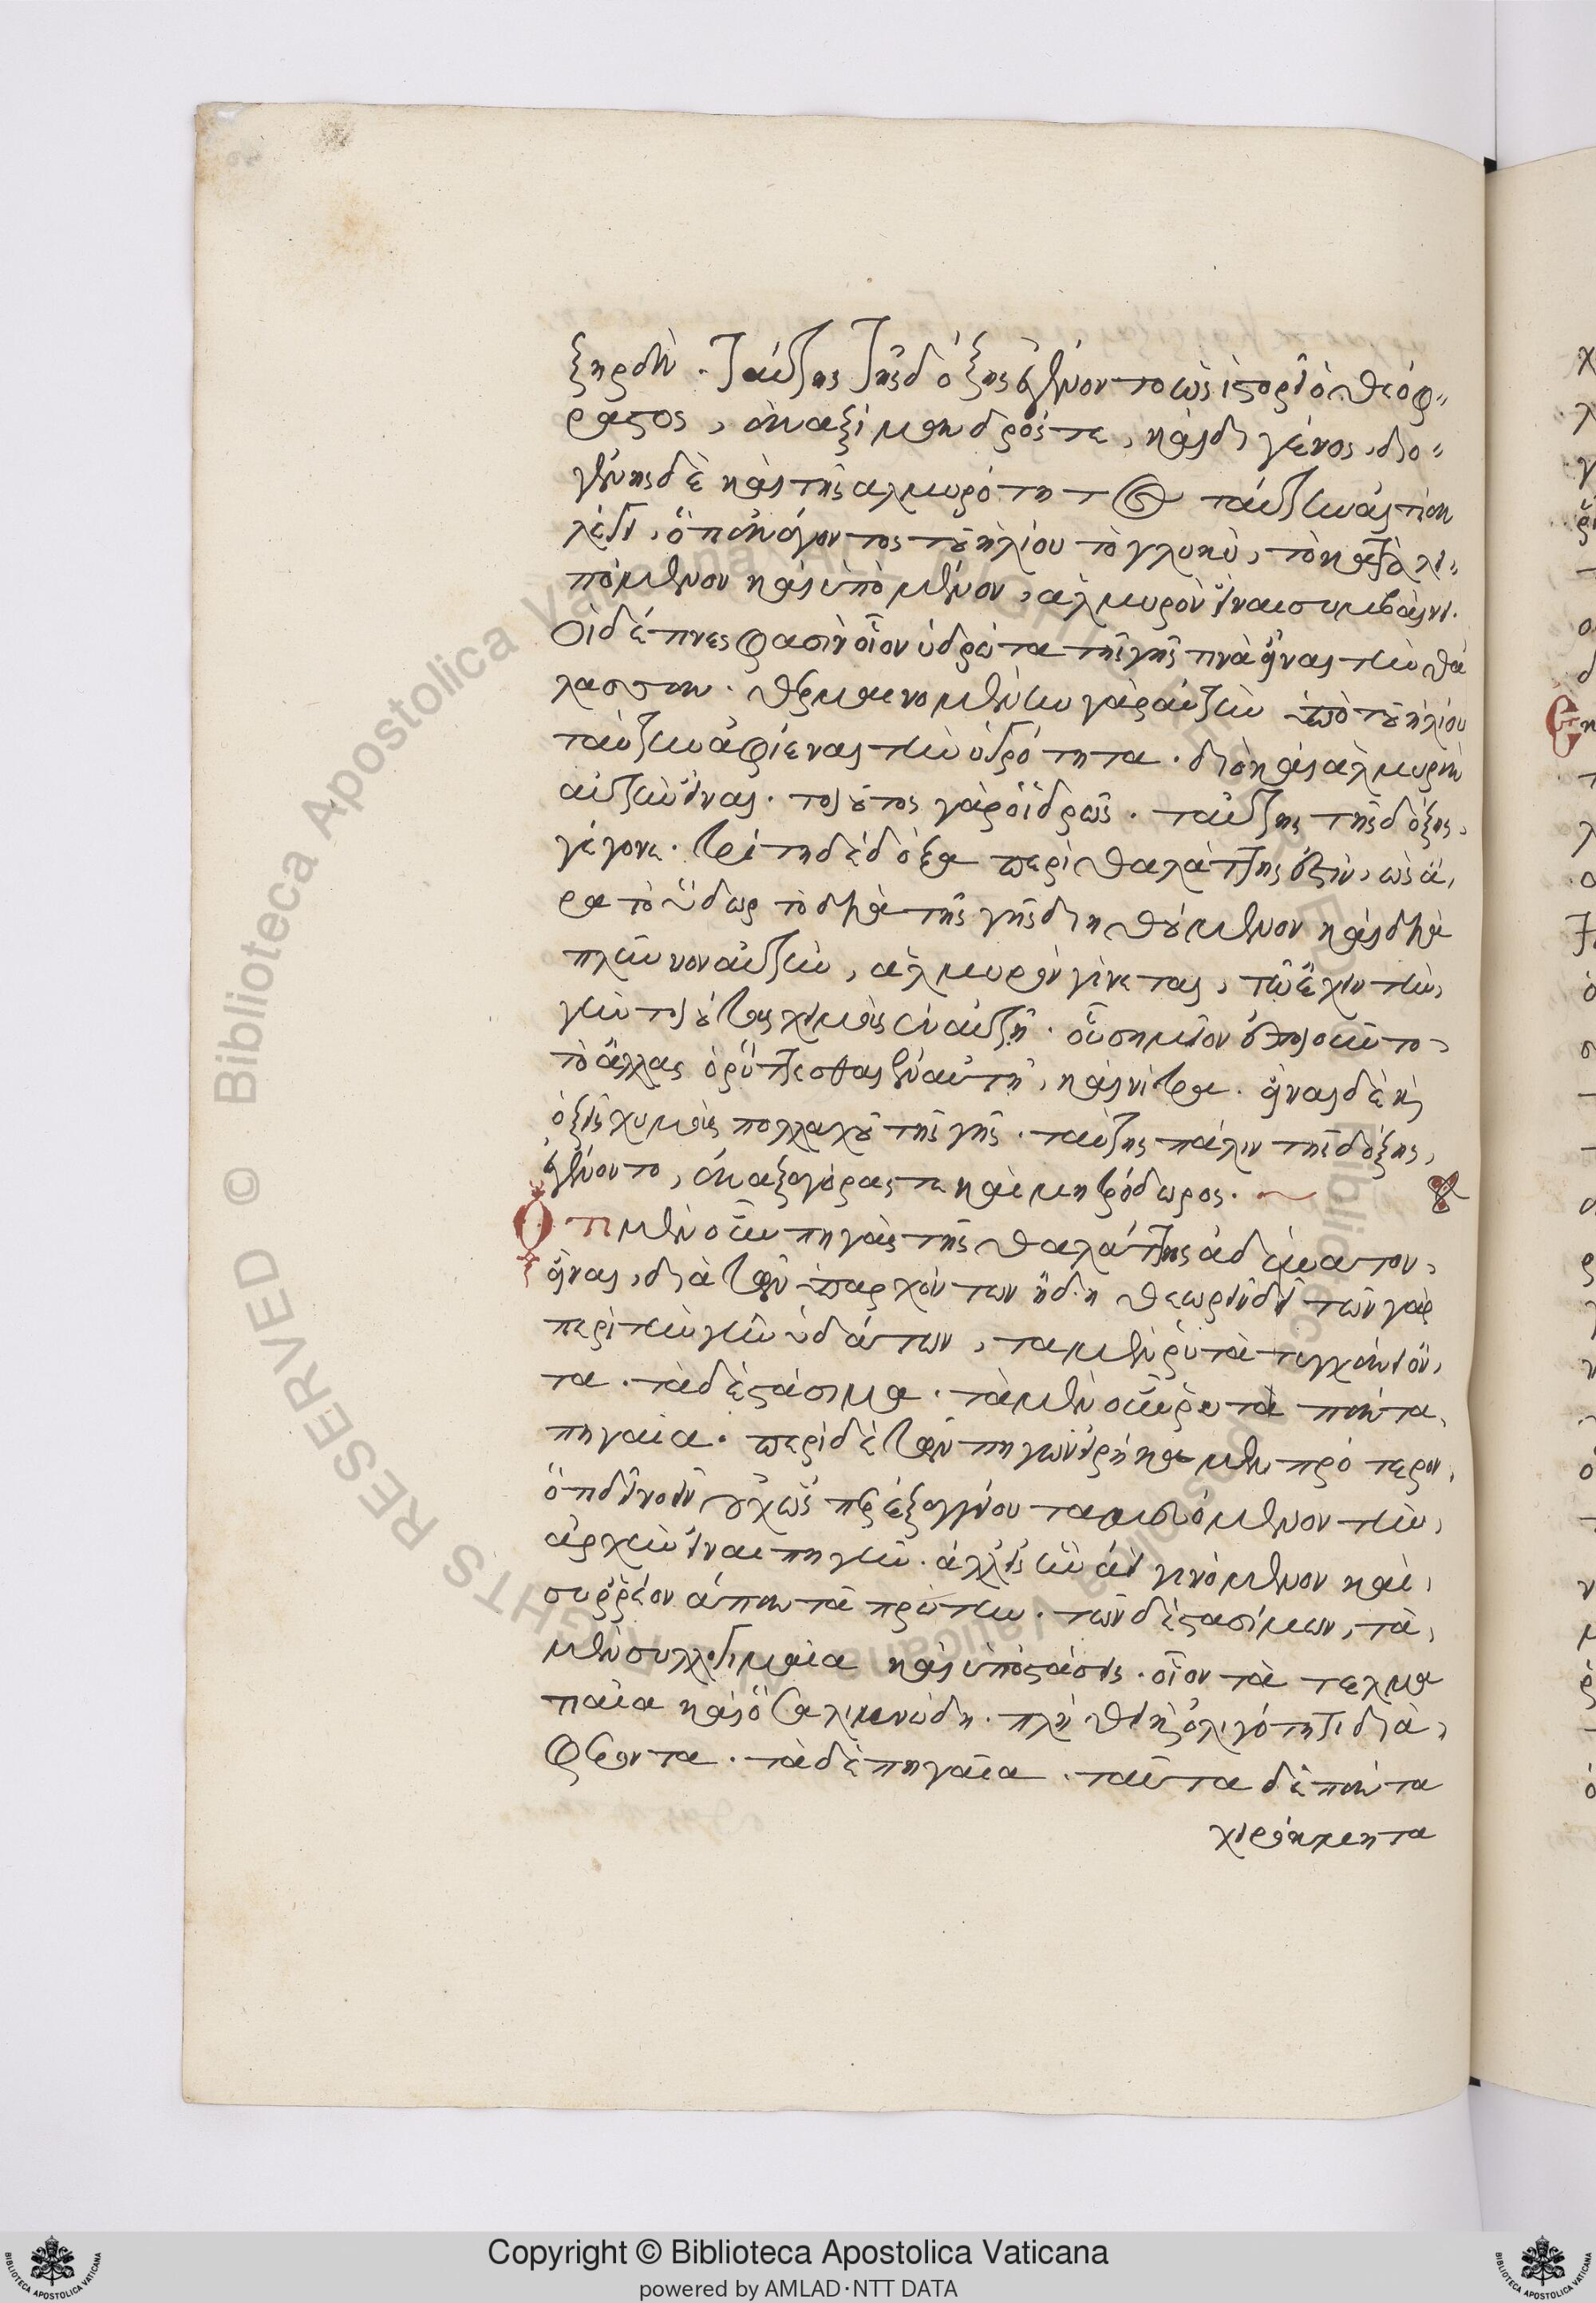 ξηράν. ταύτης τῆς δόξης ἐγένοντο ὡς ἱστορεῖ ὁ θεόφ-
ραστος, ἀναξίμανδρός τε, καὶ διγένος, διο-
γένης δὲ καὶ τῆς ἁλμυρότητος ταύτην αἰτίαν
λέγει, ὅτι ἀνάγοντος τοῦ ἡλίου τὸ γλυκὺ, τὸ καταλει-
πόμενον καὶ ὑπομένον, ἁλμυρὸν εἶναι συμβαίνει.
οἱ δέ τινες φασὶν οἷον ἱδρῶτα τῆς γῆς τινὰ εἶναι τὴν θά
λασσαν. θερμαινομένην γὰρ αὐτὴν ὑπὸ τοῦ ἡλίου
ταύτην ἀφιέναι τὴν ὑγρότητα. διὸ καὶ ἁλμυρὰν
αὐτὴν εἶναι. τοιοῦτος γὰρ ὁ ἱδρώς. ταύτης τῆς δόξης,
γέγονε. τρίτη δὲ δόξα περὶ θαλάττης ἐστὶν, ὡς ἄ,
ρα τὸ ὕδωρ τὸ διὰ τῆς γῆς διηθούμενον καὶ δια
πλύνον αὐτὴν, ἁλμυρὸν γίνεται, τῷ ἔχειν τὴν,
γῆν τοιούτους χυμοὺς ἐν αὐτῇ. οὗ σημεῖον ἐποιοῦντο,
τὸ ἅλας ὀρύττεσθαι ἐν αὐτῇ, καὶ νίτρα. εἶναι δὲ καὶ
ὀξεῖς χυμοὺς πολλαχοῦ τῆς γῆς. ταύτης πάλιν τῆς δόξης,
ἐγένοντο, ἀναξαγόρας τε καὶ μητρόδωρος.
Ὅτι μὲν οὖν πηγὰς τῆς θαλάττης ἀδύνατον,
εἶναι, διὰ τῶν ὑπαρχόντων ἤδη θεωρεῖν δεῖ τῶν γὰρ
περὶ τὴν γῆν ὑδάτων, τα μὲν ῥυτὰ τυγχάνει ὄν,
τα. τὰ δὲ στάσιμα. τὰ μὲν οὖν ῥυτὰ πάντα,
πηγαῖα. περὶ δὲ τῶν πηγῶν εἰρήκαμεν πρότερον,
ὅτι δεῖ νοεῖν οὐχ ὥσπερ ἐξ ἀγγείου ταμιευόμενον τὴν,
ἀρχὴν εἶναι πηγήν. ἀλλ' εἰς ἓν ἀεὶ γινόμενον καὶ,
συρρέον ἀπαντᾶ πρώτην. τῶν δὲ στασίμων, τὰ,
μὲν συλλογιμαῖα καὶ ὑποστάσεις. οἷον τὰ τελμα
τιαῖα καὶ ὅσα λιμνώδη. πλήθει καὶ ὀλιγότητι διὰ,
φέροντα. τὰ δὲ πηγαῖα. ταῦτα δὲ πάντα
χειρόκμητα